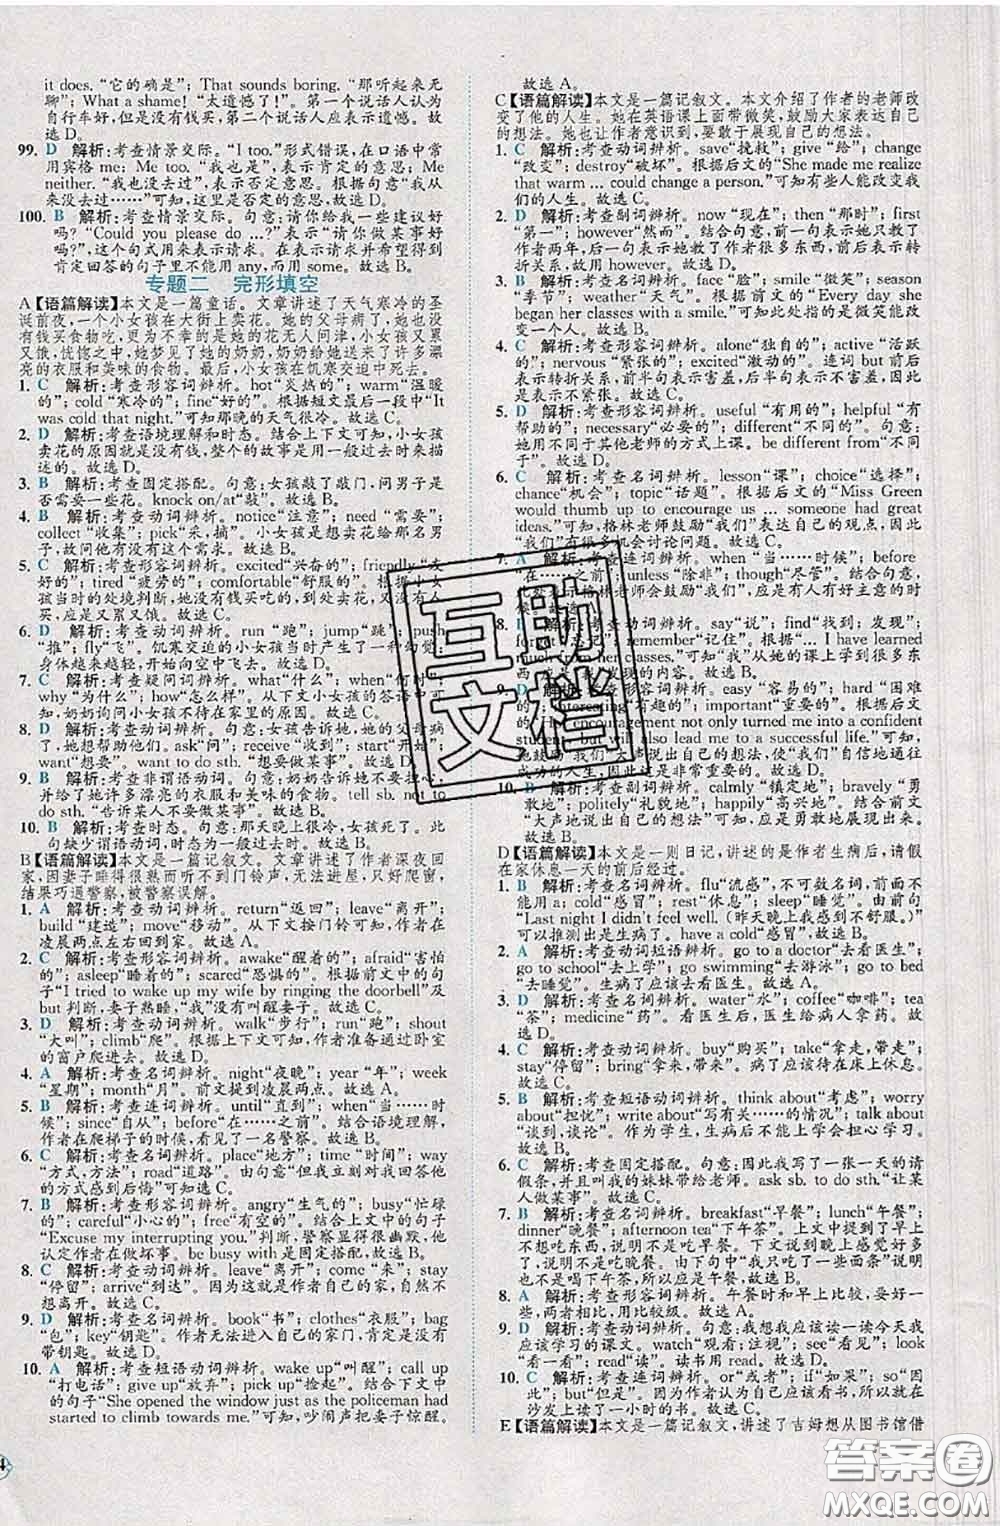 it does. “它的确是”; That sounds boring. “那听起来无
聊”; What a shame! “太遗憾了!”。第一个说话人认为
自行车好,但是没有钱买,第二个说话人应表示遗憾。故
选 D。
99. D 解析:考查情景交际。“I too.”形式错误,在口语中常
用宾格 me; Me too. “我也是”,表示肯定意思; Me
neither. “我也没去过”,表示否定意思。根据句意“我从
来没去过……”可知,这里是否定的意思,故选 D。
100. B 解析:考查情景交际。句意:请你给我一些建议好
吗? “Could you please do ...?”表示“请你做某事好
吗?”,这个句式用来表示请求。以委婉的语气希望得到
肯定回答的句子里不能用 any,而用 some。故选 B。
专题二 完形填空
A【语篇解读】本文是一篇童话。文章讲述了天气寒冷的圣
诞前夜,一个小女孩在大街上卖花。她的父母病了,她们没
有钱买食物吃,更为不幸的是她的花无人问津。小女孩又累
又饿,恍惚之中,她梦见了她的奶奶,奶奶给她送来了许多漂
亮的衣服和美味的食物。最后,小女孩在饥寒交迫中死去。
1. C 解析:考查形容词辨析。hot“炎热的”; warm“温暖
的”; cold “寒冷的”; fine“好的”。根据短文最后一段中“It
was cold that night.”可知那晚的天气很冷。故选 C。
2. D 解析:考查语境理解和时态。结合上下文可知,小女孩
卖花的原因就是没有钱,需要用钱。短文是用过去时来
描述的。故选 D。
3. B 解析:考查固定搭配。句意:女孩敲了敲门,问男子是
否需要一些花。knock on/at“敲”。故选 B。
4. B 解析:考查动词辨析。notice “注意”; need “需要”;
collect “收集”; pick“采,摘”。小女孩想把花卖给那名
男子,故问他有没有这个需求。故选 B。
5. C 解析:考查形容词辨析。excited“兴奋的”; friendly“友
好的”; tired “疲劳的”; comfortable“舒服的”。根据小女
孩当时的处境判断,她没有钱买吃的,到处卖花,没有人
买,应是又累又饿。故选 C。
6. D 解析:考查动词辨析。run “跑”; jump “跳”; push
“推”; fly“飞”。饥寒交迫的小女孩当时产生了一种幻觉:
身体越来越轻,开始向空中飞去。故选 D。
7. C 解析:考查疑问词辨析。what“什么”; when“何时”;
why“为什么”; how“怎么样”。从下文小女孩的答语中可
知,奶奶询问小女孩不待在家里的原因。故选 C。
8. D 解析:考查动词辨析。句意:女孩告诉她,她的父母病
了,她想帮帮他们。ask“问”; receive“收到”; start“开始”;
want“想要”。want to do sth.“想要做某事”。故选 D。
9. B 解析:考查非谓语动词。句意:奶奶告诉她不要担心,
并给了她许多漂亮的衣服和美味的食物。tell sb. not to do
sth. “告诉某人不要做某事”。故选 B。
10. B 解析:考查时态。句意:那天晚上很冷,女孩死了。此
句缺少谓语动词,时态为一般过去时。故选 B。
B【语篇解读】本文是一篇记叙文。文章讲述了作者深夜回
家,因妻子睡得很熟而听不到门铃声,无法进屋,只好爬窗,
结果巧遇警察,被警察误解。
1. A 解析:考查动词辨析。return“返回”; leave“离开”;
build “建造”; move“移动”。从下文按门铃可知,作者在
凌晨两点左右回家。故选 A。
2. C 解析:考查形容词辨析。awake“醒着的”; afraid“害怕
的”; asleep“睡着的”; scared“恐惧的”。根据前文中的句
子“I tried to wake up my wife by ringing the doorbell”及
but 判断,妻子睡得很熟,“我”没有叫醒妻子。故选 C。
3. D 解析:考查动词辨析。walk“步行”; run “跑”; shout
“大叫”; climb“爬”。根据上下文可知,作者准备通过卧室
的窗户爬进去。故选 D。
4. A 解析:考查名词辨析。night“夜晚”; year“年”; week
“星期”; month“月”。前文提到凌晨两点。故选 A。
5. B 解析:考查连词辨析。until“直到”; when“当……时
候”; since“自从”; before“在……之前”。结合语境理解,
作者在爬梯子的时候,看见了一名警察。故选 B。
6. C 解析:考查名词辨析。place“地方”; time“时间”; way
“方式,方法”; road“道路”。由句意“但我立刻对我回答他
的方式感到后悔”可知选 C。
7. B 解析:考查形容词辨析。angry“生气的”; busy“忙碌
的”; careful“小心的”; free“有空的”。结合上文中的句子
“Excuse my interrupting you.”判断,警察显得很幽默,他
认定作者在做坏事。be busy with 是固定搭配。故选 B。
8. C 解析:考查动词辨析。leave“离开”; come “来”; stay
“停留”; arrive“到达”。这个家就是作者自己的家,自然不
想离开。故选 C。
9. D 解析:考查名词辨析。book“书”; clothes“衣服”; bag
“包”; key“钥匙”。作者无法进入自己的家门,肯定是没有
带钥匙。故选 D。
10. A 解析:考查短语动词辨析。wake up“叫醒”; call up
“打电话”; give up“放弃”; pick up“捡起”。结合下文中
的句子“She opened the window just as the policeman had
started to climb towards me.”可知,吵闹声把妻子惊醒。
故选 A。
C【语篇解读】本文是一篇记叙文。本文介绍了作者的老师改
变了他的人生。她在英语课上面带微笑,鼓励大家表达自己
的想法。她也让作者意识到,要敢于展现自己的想法。
1. C 解析:考查动词辨析。save“挽救”; give“给”; change
“改变”; destroy“破坏”。根据后文的“She made me realize
that warm ... could change a person.”可知有些人能改变我
们的人生。故选 C。
2. D 解析:考查副词辨析。now “现在”; then“那时”; first
“第一”; however“然而”。结合句意可知,尽管她只教了
作者两年,但是她教了作者很多东西,前后表示转
折关系,故用 however。故选 D。
3. B 解析:考查名词辨析。face “脸”; smile “微笑”; season
“季节”; weather“天气”。根据后文的“Every day she
began her classes with a smile.”可知此处指的是微笑能改
变一个人。故选 B。
4. C 解析:考查形容词辨析。alone“独自的”; active “活跃
的”; nervous “紧张的”; excited“激动的”。连词 but前后
表示转折关系,前半句表示害羞,后半句表示不害羞,就
是表示不紧张。故选 C。
5. D 解析:考查形容词辨析。useful “有用的”; helpful “有
帮助的”; necessary“必要的”; different“不同的”。句意:
她用不同于其他老师的方式上课。be different from“不同
于”。故选 D。
6. C 解析:考查名词辨析。lesson“课”; choice“选择”;
chance“机会”; topic“话题”。根据后文的“Miss Green
would thumb up to encourage us ... someone had great
ideas.”可知,格林老师鼓励“我们”表达自己的观点,故可
知“我们”有很多机会讨论问题。故选 C。
7. A 解析:考查连词辨析。when “当……时候”; before
“在……之前”; unless “除非”; though“尽管”。结合句意,
此处表示格林老师会鼓励“我们”,应是有人有好主意的时
候。故选 A。
8. D 解析:考查动词辨析。say“说”; find“找到;发现”;
forget“忘记”; remember“记住”。 learned
much from her classes.”可知,“我”从她的课上学到很多东
西 故选
9. D 解析:考查形容词辨析。easy “容易的”; hard “困难
的”; interesting“有趣的”; important“重要的”。根据后文
的“Her encouragement not only turned me into a confident
student, but will also lead me to a successful life.”可知,
“我们”大声地说出自己的想法,使“我们”自信地通往
成功的人生。故选 D。
10. B 解析:考查副词辨析。calmly “镇定地”; bravely “勇
敢地”; politely“礼貌地”; happily“高兴地”。结合前文
“大声地说出自己的想法”可知,应是勇敢地展现出来。
故选 B。
D【语篇解读】本文是一则日记,讲述的是作者生病后,请假
在家休息一天的前后经过。
1. B 解析:考查名词辨析。flu“流感”,不可数名词,前面不
能用 a; cold“感冒”; rest“休息”; sleep“睡觉”。由前句
“Last night I didn't feel well. (昨天晚上我感到不舒服。)”
可以推测出是生病了。have a cold“感冒”。故选 B。
2. A 解析:考查动词短语辨析。go to a doctor“去看医生”;
go to school“去上学”; go swimming“去游泳”; go to bed
“去睡觉”。生病了应该去看医生。故选 A。
3. D 解析:考查名词辨析。water“水”; coffee“咖啡”; tea
“茶”; medicine“药”。看医生后,医生应给病人拿药。故
选 D。
4. C 解析:考查动词辨析。buy“购买”; take“拿走,带走”;
stay“停留”; bring“拿来,带来”。病了应该待在床上休息。
故选 C。
5. B 解析:考查短语动词辨析。think about“考虑”; worry
about“担忧”; write about“写有关……的情况”; talk about
“谈到,谈论”。作为学生,生病后不能上学,应担心学业。
故选 B。
6. C 解析:考查固定搭配。句意:因此我写了一张一天的请
假条,并请求我的妹妹带给老师。ask sb. to do sth.“让某
人做某事”。故选 C。
7. B 解析:考查名词辨析。breakfast“早餐”; lunch“午餐”;
dinner“晚餐”; afternoon tea“下午茶”。上文中提到了早
上不想吃东西,所以是没吃早餐。下文说到晚上感觉好多
了。由下句中“我吃了一些面条”说明
所以应是午餐。故选 B。
8. A 解析:考查形容词辨析。午餐时和早上比较,要好一
些,两者相比,用比较级。故选 A。
9. D 解析:考查动词辨析。句意:我想我应该读一读今天我
应该学习的课文。watch“观看;注视”; see“看见”; look
“看一看”; read“读”。读书用 read。故选 D。
10. C 解析:考查连词辨析。or“或者”; if“如果”; so“因
此”; but“但是”。句意:我不想再躺在床上,所以就在
沙发上读了一小时的书。故选 C。
E【语篇解读】本文是一篇记叙文,讲述了吉姆想从图书馆借
4
互助
文档
答案圈
MXQE.COM